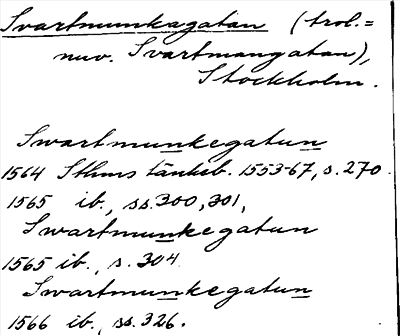 Svartmunkagatan (trol.=
nuv. Svartmangatan),
Stockholm.
Swartmunkegatun
1564 Sthms tänkeb. 1553-67, s. 270
1565 ib., ss. 300, 301,
Swartmunkegatun
1565 ib., s. 304
Swartmunkegatun
1566 ib., ss. 326.